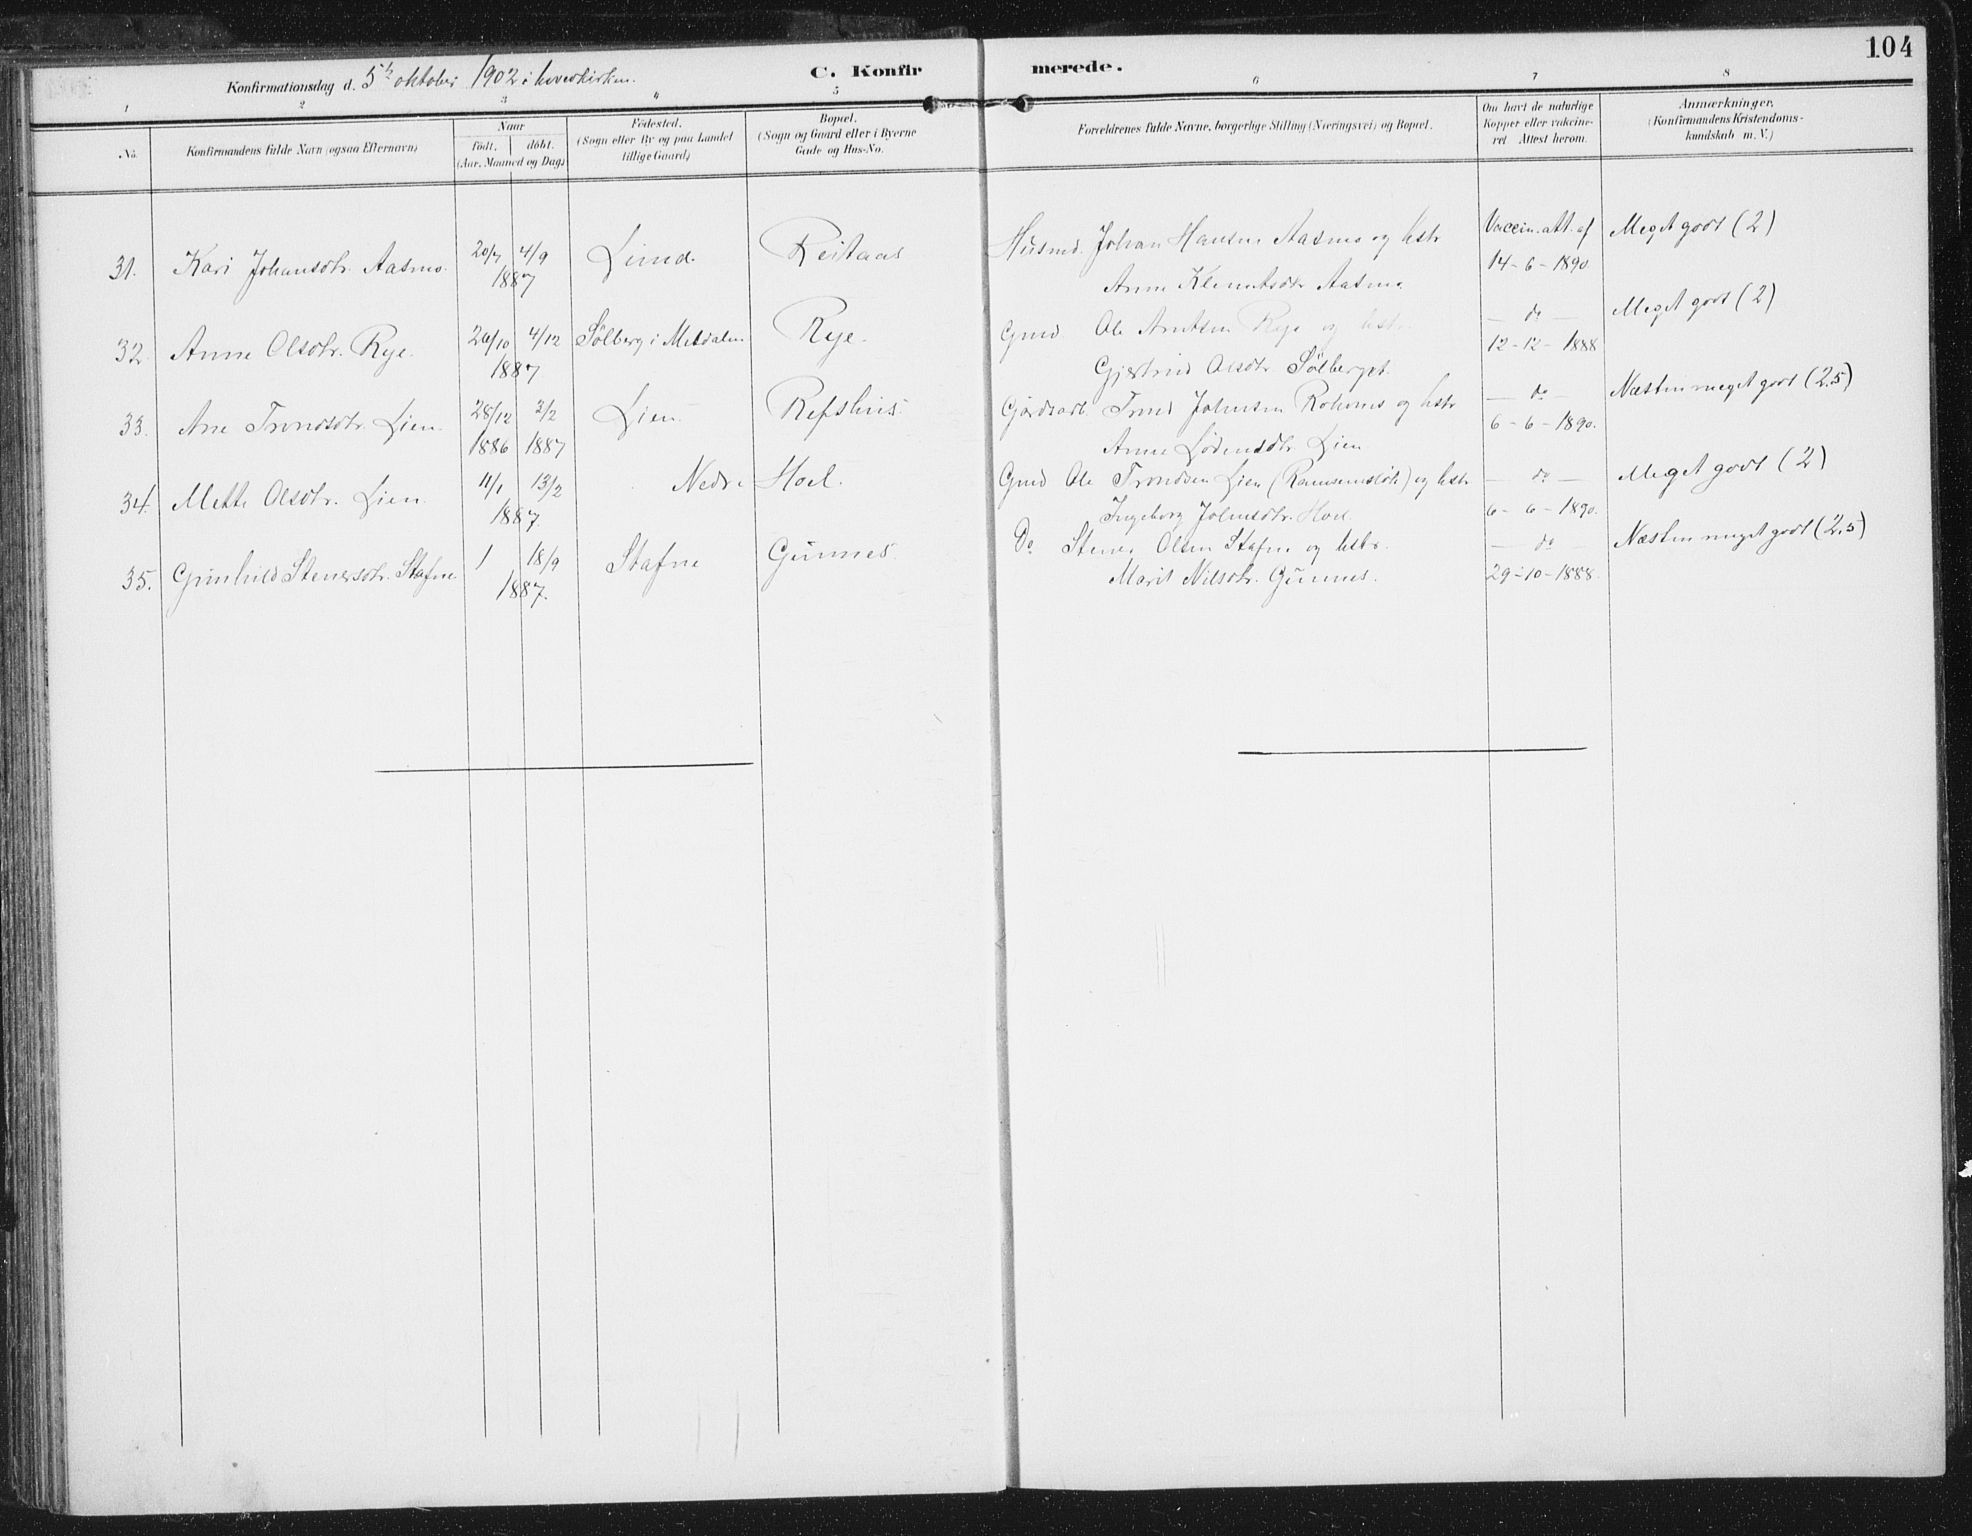 104
Konfirmationsdag d. 5te oktober 1902 i hovedkirken.
C. Konfirmerede.
1 2 3 4 5 6 7 8
No.
Konfirmandens fulde Navn (ogsaa Efternavn)
Naar
født. døbt.
(Aar, Maaned og Dag)
Födested.
(Sogn eller By og paa Landet
tillige Gaard)
Bopæl.
(Sogn og Gaard eller i Byerne
Gade og Hus-No.
Forældrenes fulde Navne, borgerlige Stilling (Næringsvei) og Bopæl.
Om havt de naturlige
Kopper eller vakcine-
ret. Attest herom.
Anmærkninger.
(Konfirmandens Kristendoms-
kundskab m. V.)
31. Kari Johansdtr. Aasmo. 20/7 4/9 Lund. Reitaas Husmd. Johan Hansen Aasmo og hstr Vaccin. att. af Meget godt (2)
1887 Anne Klemetsdtr Aasmo. 14-6-1890
32. Anne Olsdtr. Rye. 20/10 4/12 Sölberg i Meldalen Rye. Gmd Ole Arntsen Rye og hstr. — do — Meget godt (2)
1887 Gjertrud Olsdtr. Sölberget. 12-12-1888
33. Ane Trondsdtr. Lien. 28/12 2/2 Lien. Refshus. Gårdsarb. Trond Johnsen og hstr — do — Næsten meget godt (2.5)
1886 1887 Anne Lien 6-6-1890.
34. Mette Olsdtr. Lien. 11/1 13/2 Nedre Hoel. Gmd Ole Trondsen Lien og hstr — do — Meget godt (2)
1887. Ingeborg Johnsdtr. Hoel 6-6-1890.
35. Gunhild Stenersdtr. Stafne. 1 18/9 Stafne Gunnes. Do Stener Olsen Stafne og hstr. — do — Næsten meget godt (2.5)
1887. Marit Nilsdtr. Gunnes. 29-10-1888.